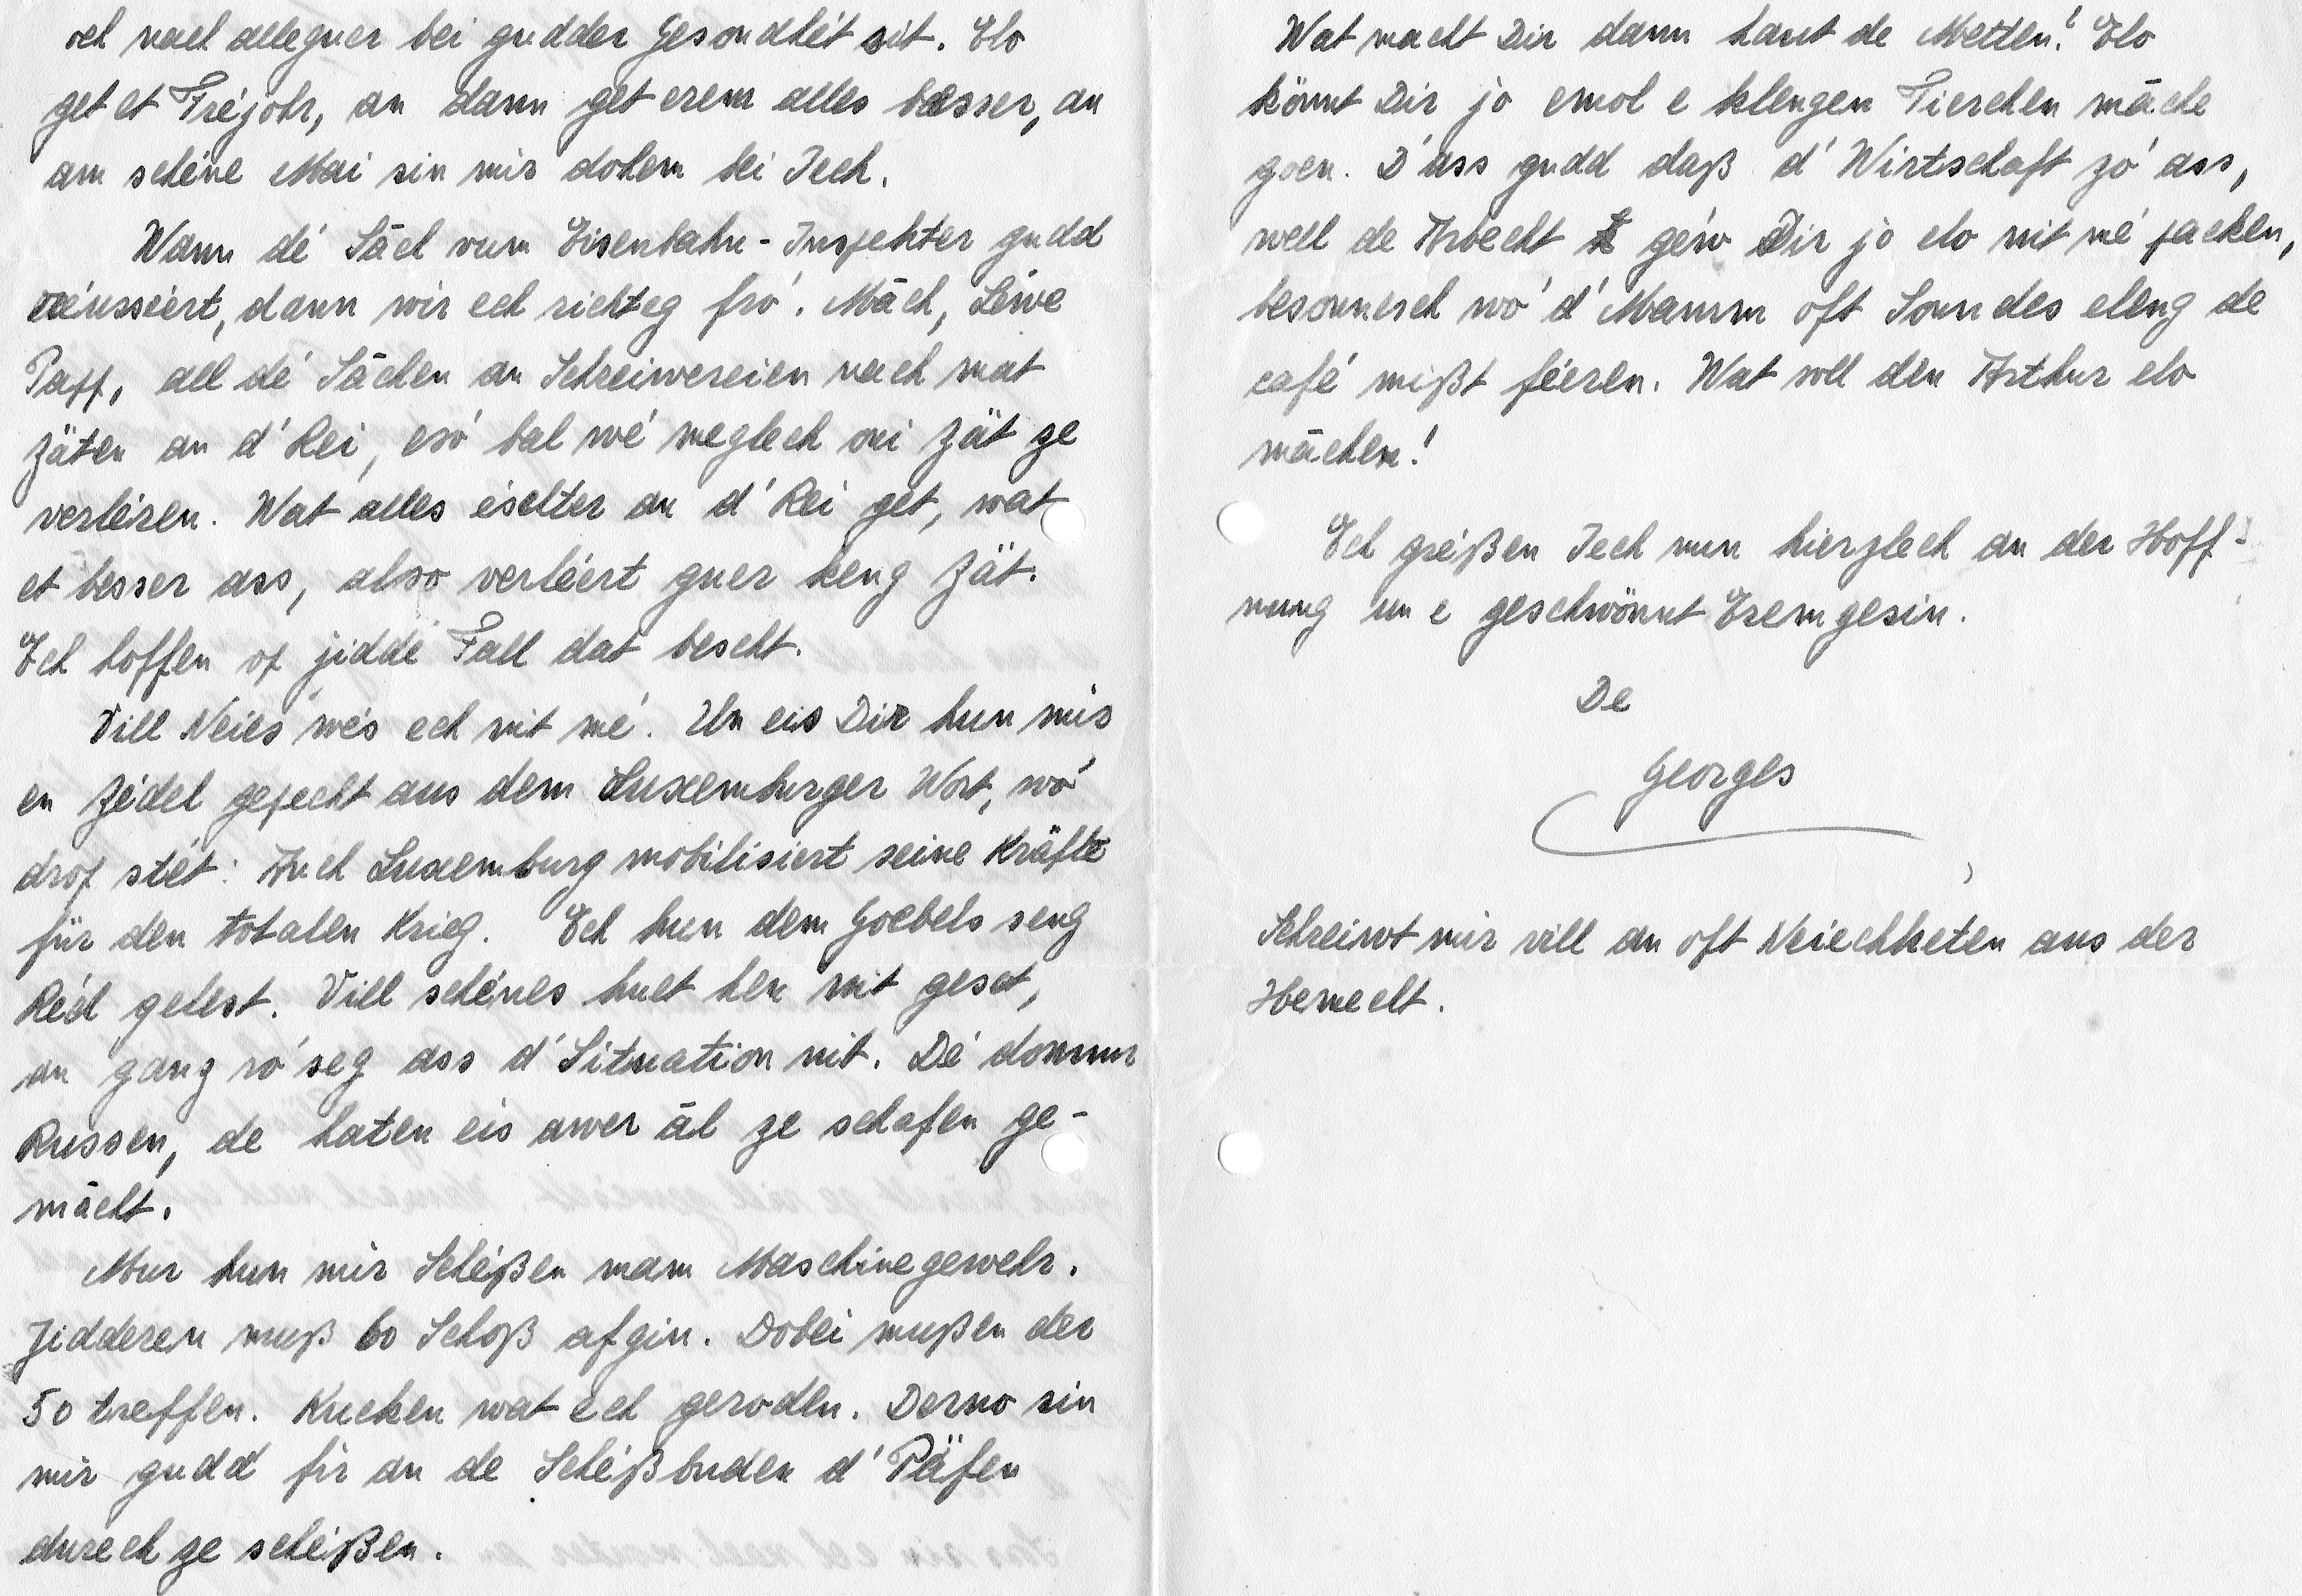 och nach alleguer bei gudder Gesondhét sit. Elo
get et Fréjohr, an dann get erem alles besser, an
am schéne Mai sin mir dohem bei Iech.
Wann dé Säch vum Eisenbahn-Inspekter gudd
réusséiert, dann wir ech richteg fró. Mäch, Léiwe
Papp, all dé Sächen an Schreiwereien nach mat
Zäten an d'Rei, esó bal wé méglech oni Zät ze
verléiren. Wat alles éischter an d'Rei get, wat
et besser ass, also verléert guer keng Zät.
Ech hoffen op jiddé Fall dat bescht.
Vill Neies wés ech nit mé. Un eis Dir hun mir
en Zédel gepecht aus dem Luxemburger Wort, wó
drop stét: Auch Luxemburg mobilisiert seine Kräfte
für den totalen Krieg. Ech hun dem Goebels seng
Réd gelest. Vill schénes huet hen nit gesot,
an ganz ró'seg ass d'Situation nit. Dé domm
Russen, de haten eis awer äl ze schafen ge-
mächt.
Mur hun mir Schéißen mam Maschinegewehr.
Jidderen muß 60 Schoß afgin. Dobei mußen der
50 treffen. Kucken wat ech geroden. Derno sin
mir gudd fir an de Schéißbuden d'Päfen
durech ze schéißen.
Wat macht Dir dann haut de Metten? Elo
könnt Dir jo emol e klengen Tierchen mäche
goen. D'ass gudd daß d'Wirtschaft zó ass,
well de Arbecht géw Dir jo elo nit mé packen,
besonnesch wó d'Mamm oft Sonndes eleng de
café mißt féieren. Wat soll den Arthur elo
mächen!
Ech gréißen Iech nun hierzlech an der Hoff-
nung un e geschwönnt Eremgesin.
De
Georges
Schreiwt mir vill an oft Neiechketen aus der
Hemecht.